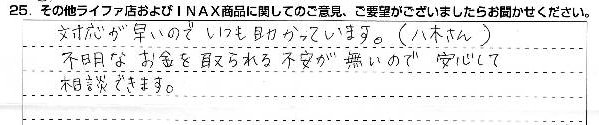 25. その他ライファ店およびINAX商品に関してのご意見、ご要望がございましたらお聞かせください。
対応が早いのでいつも助かっています。(八木さん)
不明なお金を取られる不安が無いので安心して
相談できます。